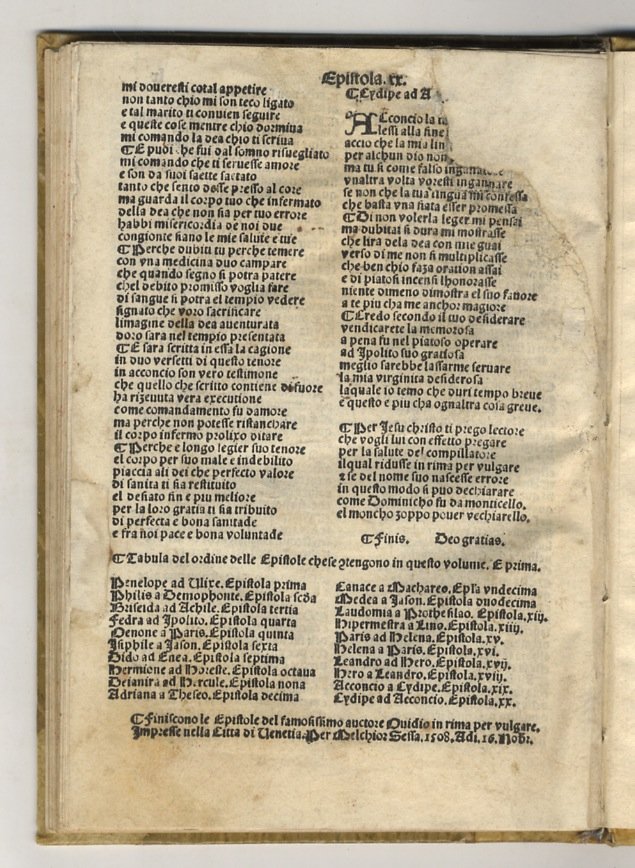 Epistola.xx.
mi doueresti cotal appetire
non tanto chio mi son teco ligato
e tal marito ti conuien seguire
e queste cose mentre chio dormiua
mi comando la dea chio ti scriua
¶E pudi che fui dal somno risuegliato
mi comando che ti seruesse amore
e son da suoi saette saetato
tanto che sento desse presso al core
ma guarda il corpo tuo che infermato
della dea che non sia per tuo errore
habbi misericordia de noi due
congionte siano le mie salute e tue
¶Perche dubiti tu perche temere
con vna medicina duo campare
che quando segno si potra patere
chel debito promisso voglia fare
di sangue si potra el tempio vedere
signato che voro sacrificare
limagine della dea auenturata
doro sara nel tempio presentata
¶E sara scritta in essa la cagione
in duo versetti di questo tenore
in acconcio son vero testimone
che quello che scritto contiene di fuore
ha riceuuta vera executione
come comandamento fu damore
ma perche non potesse ristanchare
il corpo infermo prolixo ditare
¶Perche e longo legier suo tenore
el corpo per suo male e indebilito
piaccia ali dei che perfecto valore
di sanita ti sia restituito
el desiato fin e piu meliore
per la loro gratia ti sia tribuito
di perfecta e bona sanitade
e fra noi pace e bona voluntade
¶Cydipe ad A
ACconcio la
lessi alla fine
accio che la mia lin
per alchun dio non
ma tu si come falso
vnaltra volta voresti ingannare
se non che la tua lingua mi confessa
che basta vna fiata esser promessa
¶Di non volerla leger mi pensai
ma dubitai si dura mi mostrasse
che lira dela dea con mie guai
verso di me non si multiplicasse
che ben chio faza oration assai
e di piatosi incensi lhonorasse
niente dimeno dimostra el suo fauore
a te piu cha me anchor magiore
¶Credo secondo il tuo desiderare
vendicarete la memorosa
a pena fu nel piatoso operare
ad Ipolito suo gratiosa
meglio sarebbe lassarme seruare
la mia virginita desiderosa
laquale io temo che duri tempo breue
e questo e piu cha ognaltra cosa greue.
¶Per Jesu christo ti prego lectore
che vogli lui con effetto pregare
per la salute del compillatore
ilqual ridusse in rima per vulgare
e se del nome suo nascesse errore
in questo modo si puo dechiarare
come Dominicho fu da monticello.
el moncho zoppo pouer vechiarello.
¶Finis. Deo gratias.
¶Tabula del ordine delle Epistole che se 9tengono in questo volume. E prima.
Penelope ad Ulixe. Epistola prima
Philis a Demophonte. Epistola scda
Briseida ad Achile. Epistola tertia
Fedra ad Ipolito. Epistola quarta
Oenone a Paris. Epistola quinta
Isiphile a Jason. Epistola sexta
Dido ad Enea. Epistola septima
Hermione ad Horeste. Epistola octaua
Deianira ad Hercule. Epistola nona
Adriana a Theseo. Epistola decima
Canace a Machareo. Epla vndecima
Medea a Jason. Epistola duodecima
Laudomia a Prothesilao. Epistola.xiij.
Hipermestra a Lino. Epistola.xiiij.
Paris ad Helena. Epistola.xv.
Helena a Paris. Epistola.xvi.
Leandro ad Hero. Epistola.xvij.
Hero a Leandro. Epistola.xviij.
Acconcio a Cydipe. Epistola.xix.
Cydipe ad Acconcio. Epistola.xx.
¶Finiscono le Epistole del famosissimo auctore Ouidio in rima per vulgare.
Impresse nella Citta di Uenetia. Per Melchior Sessa. 1508. Adi. 16. Nobr.